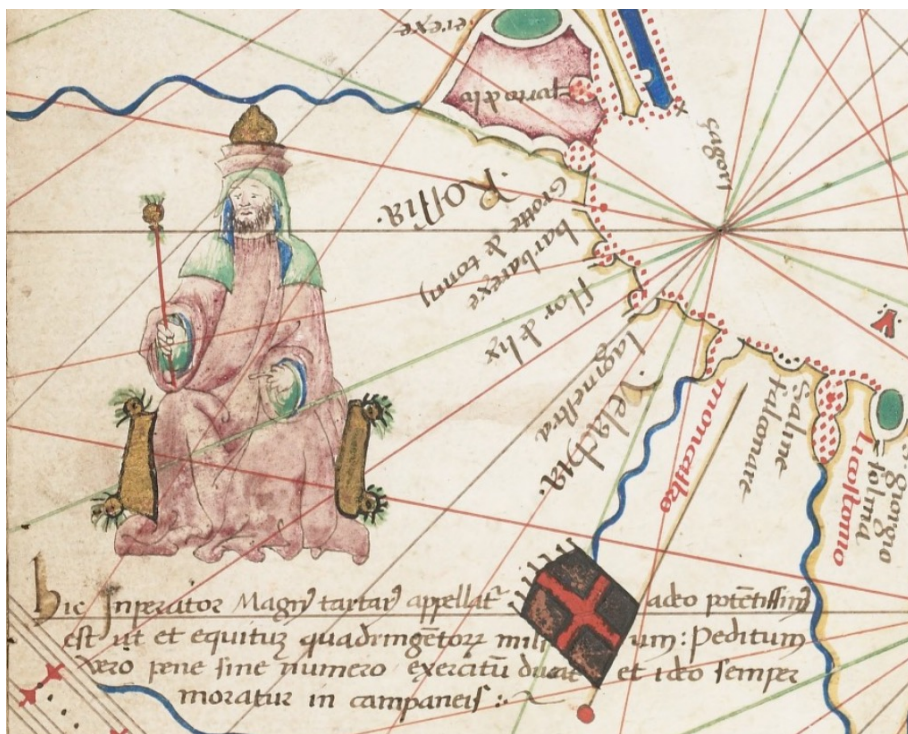 erexe
porto de lo
logaș
Rossia.
Grotte de tonij
barbarexe
flor de lix
laginestra
Velachia.
moncastro
Saline
falconare
licostomo
S. giorgio
solina
hic Inperator Magnꝰ tartarꝰ appellatʳ adeo potētissimꝰ
est ut et equituȝ quadringētorꝝ mili um: Peditum
vero pene sine numero exercitū ducit et ideo semper
moratur in campaneis :~